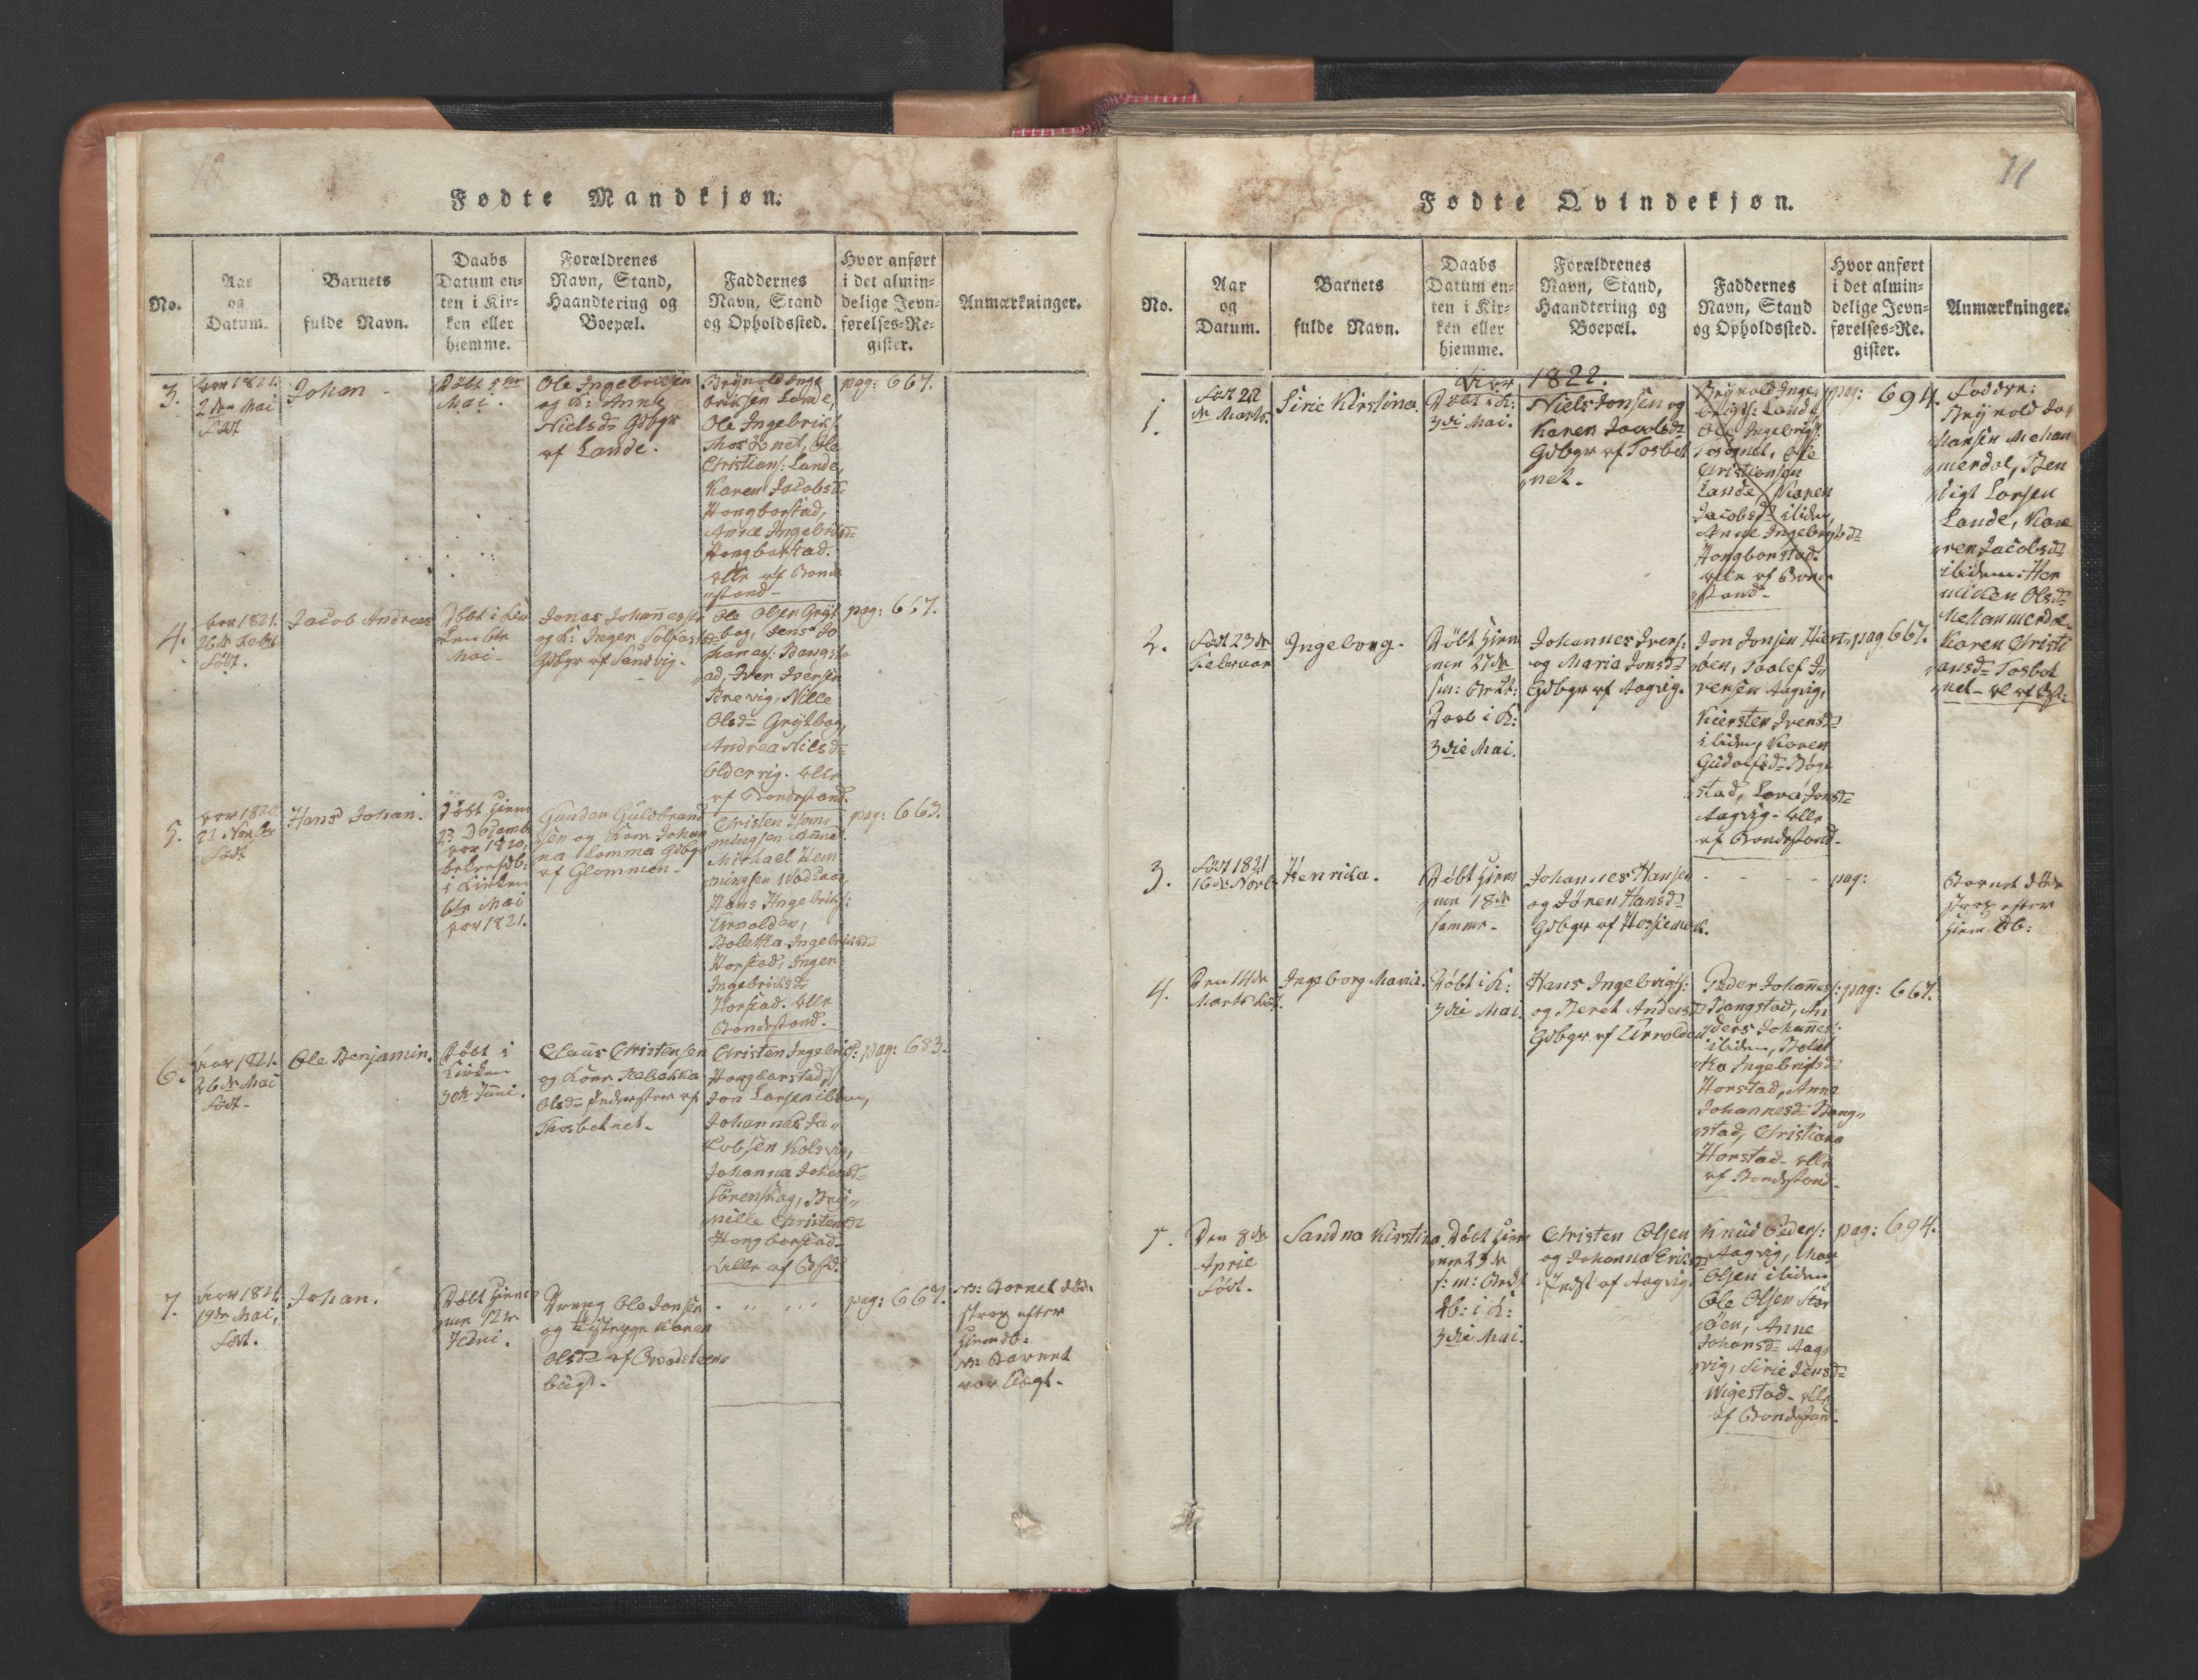 18
Fødte Mandkjøn.
No.
Aar
og
Datum.
Barnets
fulde Navn.
Daabs
Datum en-
ten i Kir-
ken eller
hjemme.
Forældrenes
Navn, Stand,
Haandtering og
Boepæl.
Faddernes
Navn, Stand
og Opholdssted.
Hvor anført
i det almin-
delige Jevn-
førelses-Re-
gister.
Anmærkninger.
3.
1821.
2den Mai
Født
Johan
Døbt
Mai.
Ole Ingebrigtsen
og K: Anne
Nielsd: Gdbgr
af Lande.
Brynold Inge
brihsen Lande,
Ole Ingebriks:
Ole
Christians: Lande,
Karen Jacobsd:
Hongborstad,
Anne Ingebriksd:
Hongborstad.
alle af Bonde
stand-
pag: 667.
4.
1821.
26de Febr
Født.
Jacob Andreas
Døbt i Kir
ken 6te
Mai-
Jonas Johannessen
og K: Inger
Gdbgr af Sandvig-
Ole Olsen Gryt
bog, Jens Jo
hanes: Bangst
ad, Iver Iversen
Brevig, Nille
Olsd: Grytbog,
Andrea Nilsd:
Oldervig. alle
af Bondestand.
pag: 667.
5.
1820.
Født
Hans Johan.
Døbt Hjem
23 Decemb
1820,
i Kirken
6te Mai
1821.
Gundar Guldbrand
sen og Kone Johan
na Lomma Gdbgr
af Glommen-
Christen Hem
mingsen
Michael Hem
mingsen
Hans Ingebriks:
Urvolden,
Boletta Ingebriksd:
Horstad, Inger
Ingebriksd:
Horstad. alle
Bondestand.
pag: 663.
6.
1821.
26de Mai
Født-
Ole Benjamin.
Døbt i
Kirken
Juni.
Claus Christensen
og Kone Rebekka
Olsd: Inderster af
Thosbotnet-
Christen Ingebrigts:
Hongborstad,
Jon Larsen ibidem,
Johannes Ja
cobsen Kolsvig,
Johanna Johansd:
Sørenskog, Bryn
nille Christensd:
Hongborstad-
Alle af Bstd:
pag: 683.
7.
1821.
19de Mai,
Født.
Johan.
Døbt Hjem
me 12te
Juni.
Dreng Ole Jonsen
og Karen
Olsd: af
bugt-
pag: 667.
NB: Barnet døde
strax efter
Hjemdb:
NB: Barnet
var Uægt-
11
Fødte Qvindekjøn.
No.
Aar
og
Datum.
Barnets
fulde Navn.
Daabs
Datum en-
ten i Kir-
ken eller
hjemme.
Forældrenes
Navn, Stand,
Haandtering og
Boepæl.
Faddernes
Navn, Stand
og Opholdssted.
Hvor anført
i det almin-
delige Jevn-
førelses-Re.
gister.
Anmærkninger.
1822.
1.
Født 22
de Marts.
Sirie Kirstina.
Døbt i K:
3die Mai.
Niels Jonsen og
Karen Jacobsd:
Gdbgr af Tosbot
net.
Brynold Inge
brigts: Lande
Ole Ingebrigts:
Tosbotnet, Ole
Christiansen
Lande, Karen
Jacobsd: ibidem,
Anne Ingebrigtsd:
Hongborstad-
alle af Bonde
stand-
pag: 694.
Faddre:
Brynold Jo
hansen Mehan
merdal, Ben
digt Larsen
Lande, Ka
ren Jacobsd:
ibidem. Hen
miken Olsd:
Mehammerdal
Karen Christi
ansd: Tosbot
net- alle af Bst:
2.
Født 23de
Februar
Ingeborg.
Døbt Hjem
me 27de
Daab i K:
3die Mai.
Johannes Ivers:
og Maria Jonsd:
Gdbgr af Aagvig.
Jon Jonsen
øen, Paalef I
versen Aagvig,
Kiersten Iversd:
ibidem, Karen
Gudolfsd: Boge
stad, Lova Jonsd:
Aagvig- alle
af Bondestand-
pag. 667.
3.
Født 1821
16de Novb:
Henrika.
Døbt Hjem
me 18de
samme-
Johannes Hansen
og Jøren Hansd:
Gdbgr af
pag:
Barnet døde
strax efter
Hjem-Db:
4.
Den 14de
Marts Født.
Ingeborg Maria.
Døbt i K:
3die Mai
Hans Ingebrigts:
og Beret Andersd:
Gdbgr af Urvolden
Peder Johannes:
Bangstad, An
ders Johannes:
ibidem, Bolet
ta Ingebrigtsd:
Horstad, Anne
Johannesd: Bang
stad, Christiana
Horstad- alle
af Bondestand-
pag: 667.
5.
Den 8de
April
Født.
Sandna Kirstina.
Døbt Hjem
me 23de
s: m:
Db: i K:
3die Mai.
Christen Olsen
og Johanna Eriksd:
Indst af Aagvig.
Knud Peders:
Aagvig,
Olsen ibidem
Ole Olsen Stor
øen, Anne
Johansd: Aag
vig, Sirie Jensd:
Wigestad- alle
af Bondestand-
pag: 694.